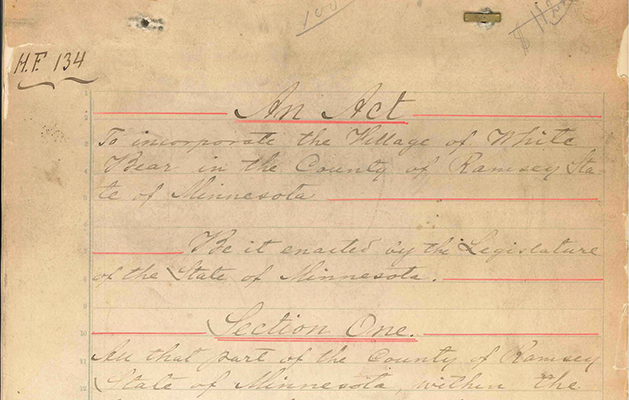 H.F. 134
An Act
To incorporate the Village of White
Bear in the County of Ramsey Sta-
te of Minnesota
Be it enacted by the Legislature
of the State of Minnesota.
Section One.
All that part of the County of Ramsey
State of Minnesota, within the